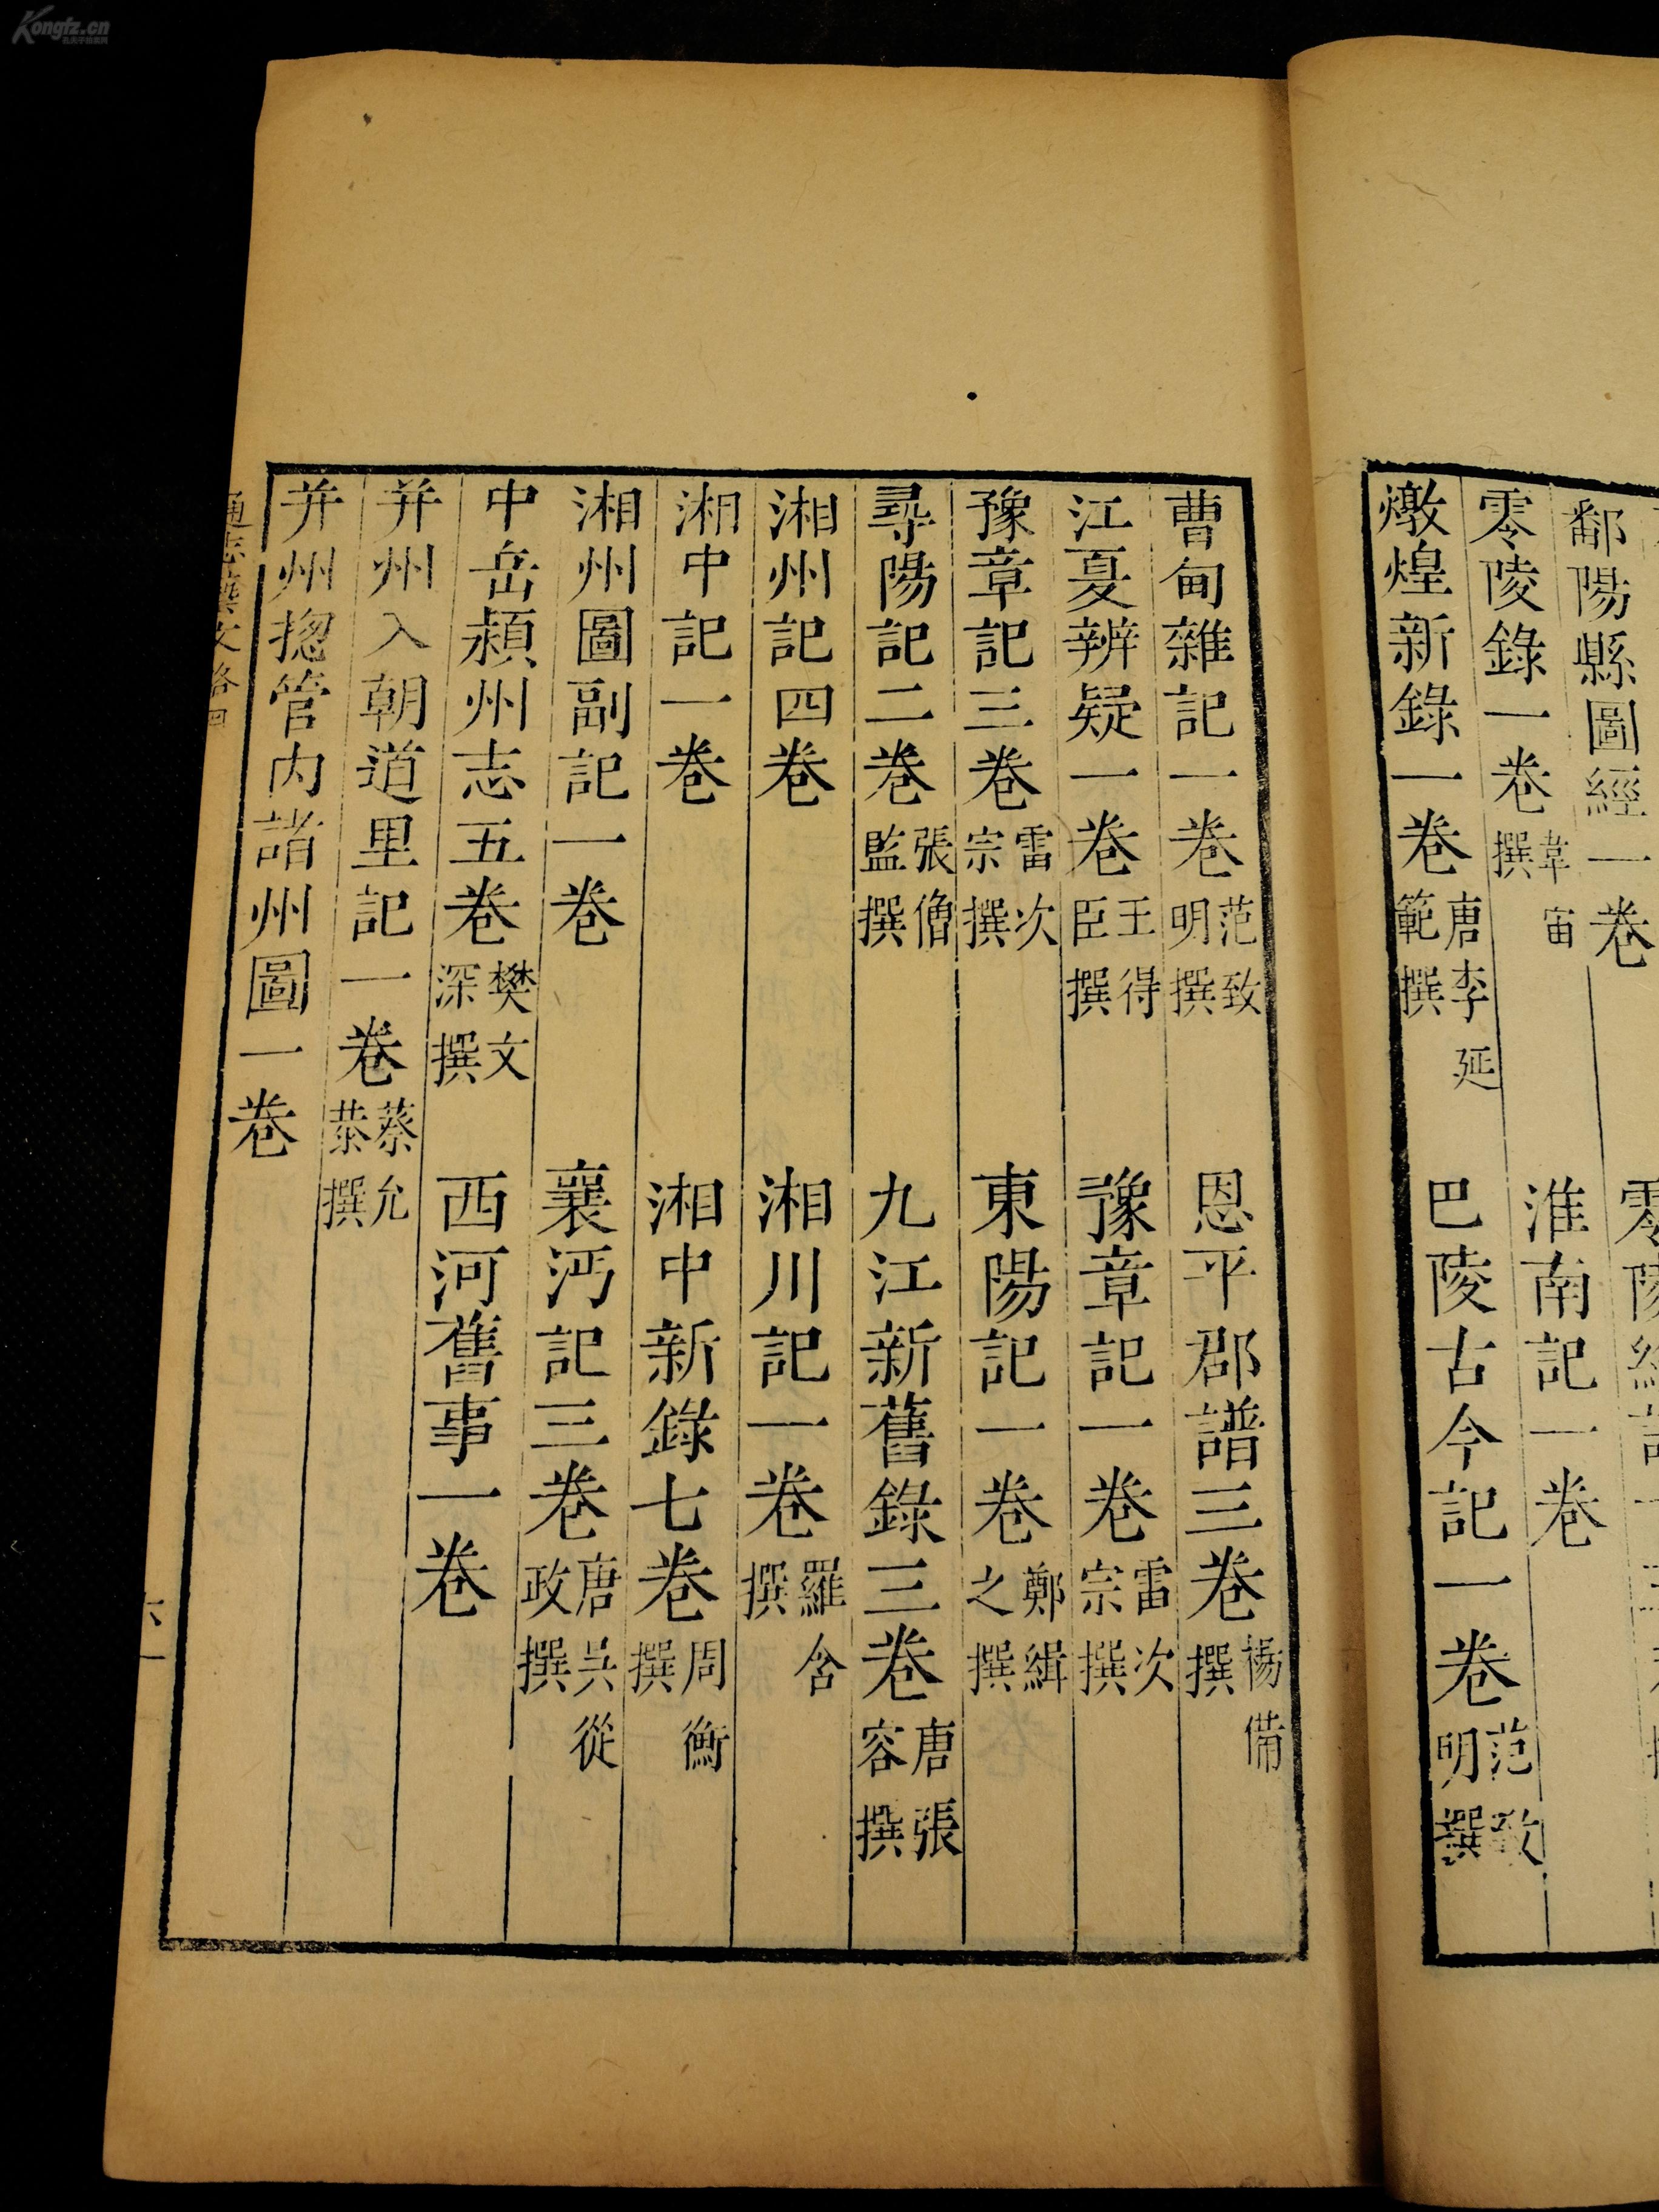 Kongfz.cn
鄱陽縣圖經一卷
零陵錄一卷 韋宙撰 淮南記一卷
燉煌新錄一卷 唐李延範撰 巴陵古今記一卷 范致明撰
曹甸雜記一卷 范致明撰 恩平郡譜三卷 楊備撰
江夏辨疑一卷 王得臣撰 豫章記一卷 雷次宗撰
豫章記三卷 雷次宗撰 東陽記一卷 鄭緝之撰
尋陽記二卷 張僧監撰 九江新舊錄三卷 唐張容撰
湘州記四卷 湘川記一卷 羅含撰
湘中記一卷 湘中新錄七卷 周衡撰
湘州圖副記一卷 襄沔記三卷 唐吳從政撰
中岳潁州志五卷 樊文深撰 西河舊事一卷
并州入朝道里記一卷 蔡允恭撰
并州揔管內諸州圖一卷